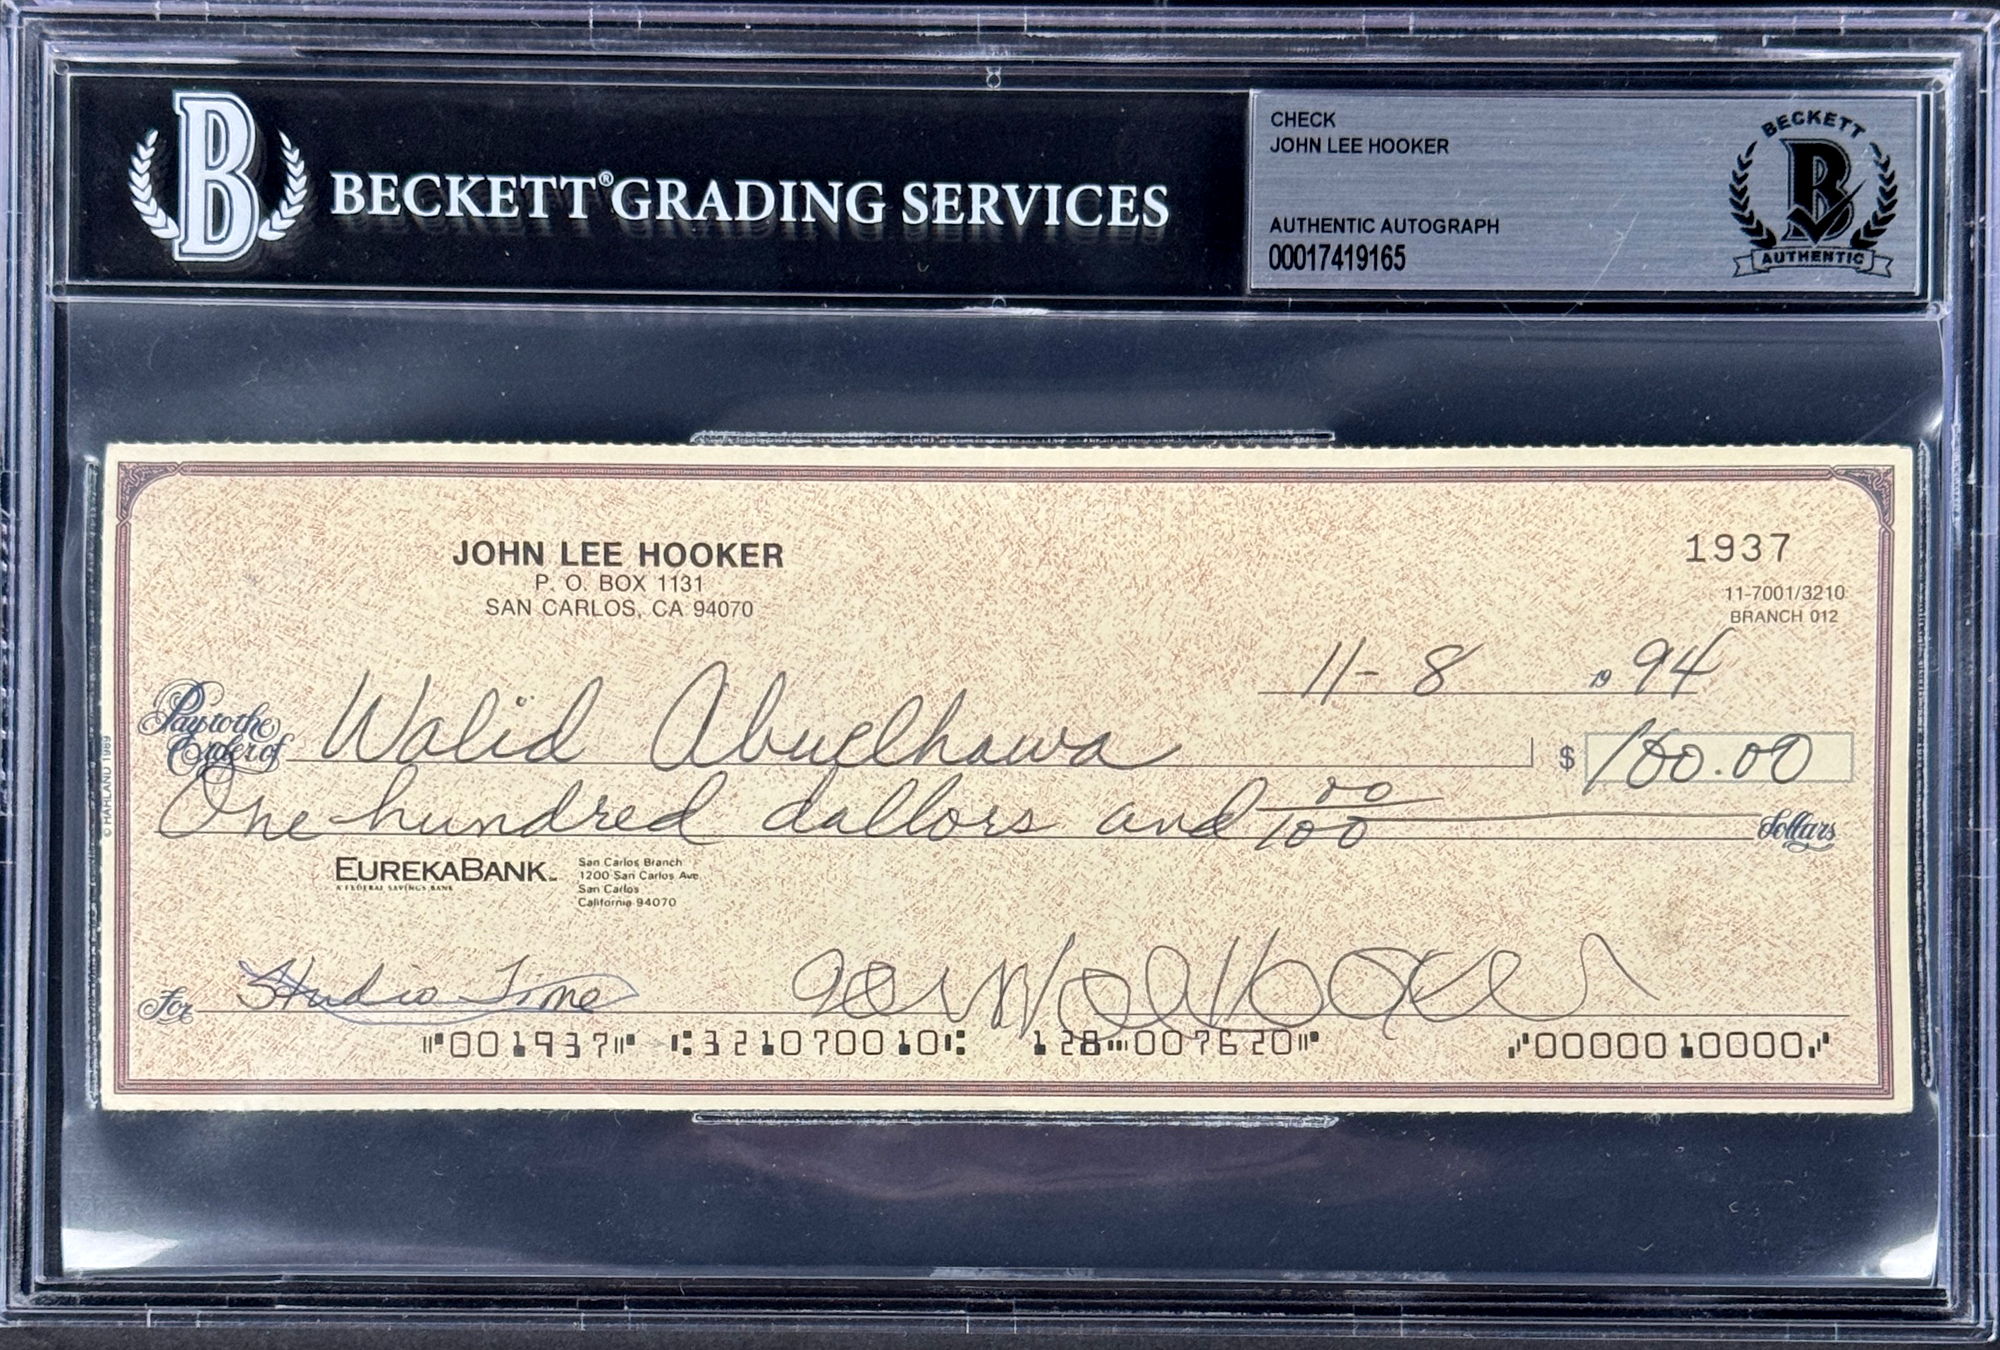 B BECKETT® GRADING SERVICES
CHECK
JOHN LEE HOOKER
AUTHENTIC AUTOGRAPH
00017419165
BECKETT
B
AUTHENTIC
JOHN LEE HOOKER
P. O. BOX 1131
SAN CARLOS, CA 94070
1937
11-7001/3210
BRANCH 012
11-8 19 94
Pay to the
Order of Walid Abuelhawa $ 100.00
One hundred dallors and 00/100 Dollars
© HARLAND 1989
EUREKABANK
A FEDERAL SAVINGS BANK
San Carlos Branch
1200 San Carlos Ave
San Carlos
California 94070
For Studio Time John Lee Hooker
⑈001937⑈ ⑆321070010⑆ 128⑉007620⑈ ⑇0000010000⑇